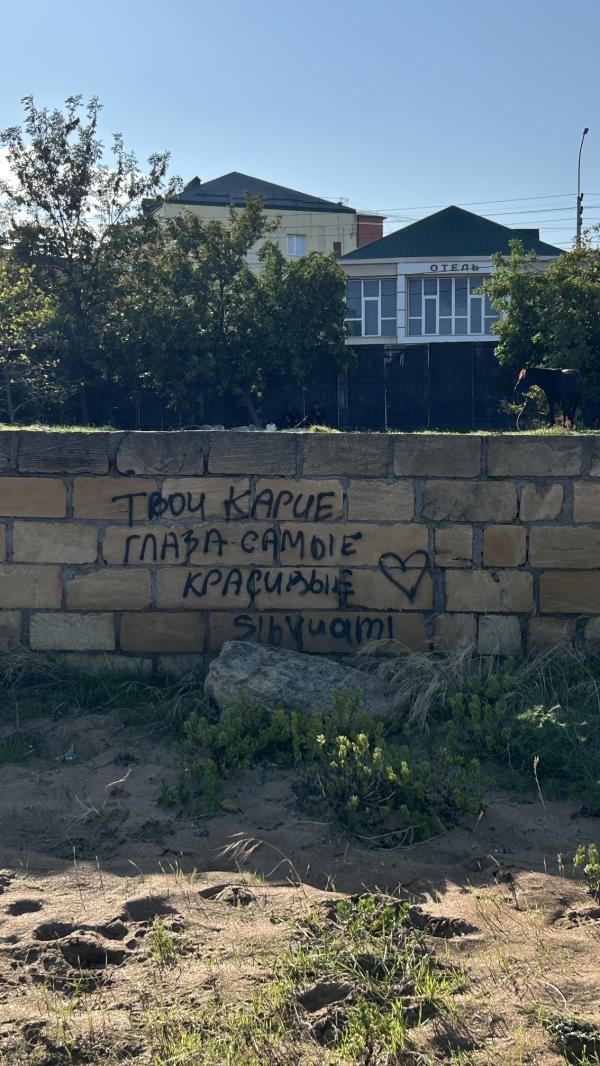 ОТЕЛЬ
ТВОИ КАРИЕ
ГЛАЗА-САМЫЕ
КРАСИВЫЕ
SIBYUAMI